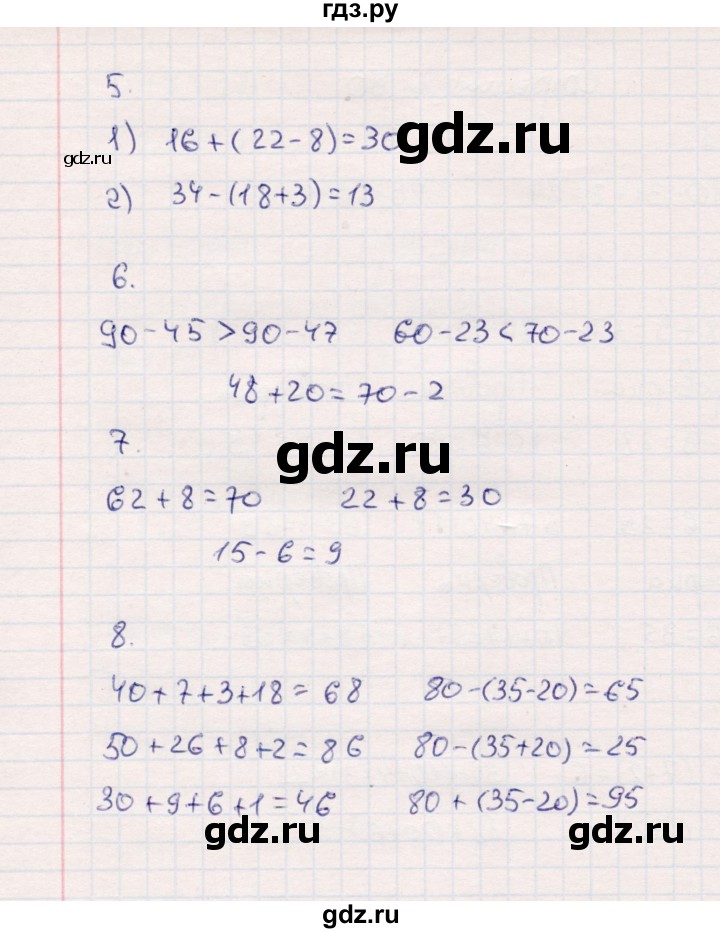 гдз.ру
5.
1) 16+(22-8)=30
gdz.ru
gdz.ru
2) 34-(18+3)=13
6.
90-45>90-47 60-23<70-23
48+20=70-2
gdz.ru
7.
62+8=70 22+8=30
15-6=9
8.
40+7+3+18=68 80-(35-20)=65
50+26+8+2=86 80-(35+20)=25
30+9+6+1=46 80+(35-20)=95
gdz.ru
gdz.ru
gdz.ru